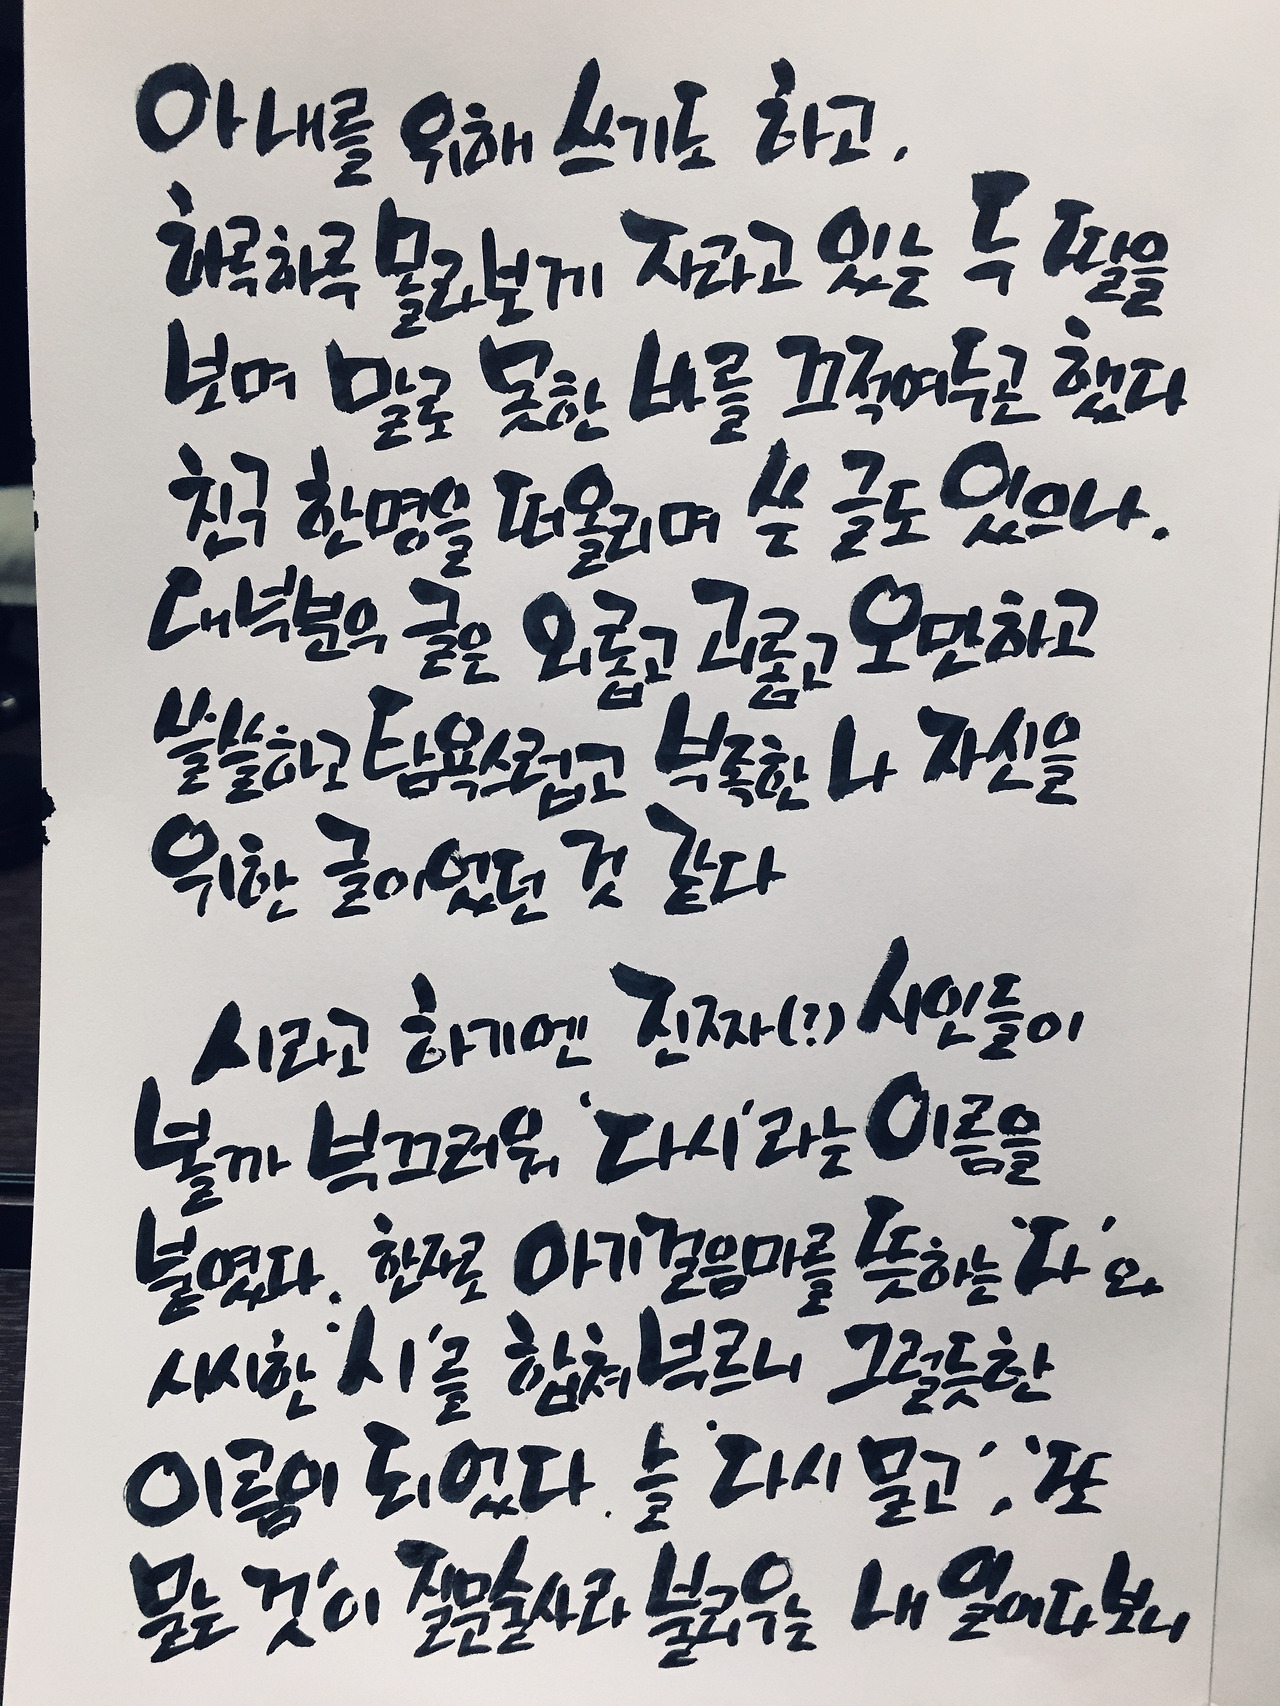 아내를 위해 쓰기도 하고,
하루하루 몰라보게 자라고 있는 두 딸을
보며 말로 못한 바를 끄적여두곤 했다
친구 한명을 떠올리며 쓴 글도 있으나,
대부분의 글은 외롭고 괴롭고 오만하고
쓸쓸하고 탐욕스럽고 부족한 나 자신을
위한 글이었던 것 같다
시라고 하기엔 진짜(?) 시인들이
볼까 부끄러워 '다시'라는 이름을
붙였다. 한자로 아기걸음마를 뜻하는 '다'와
시시한 '시'를 합쳐부르니 그럴듯한
이름이 되었다. 늘 '다시 묻고', '또
묻는 것'이 질문술사라 불리우는 내